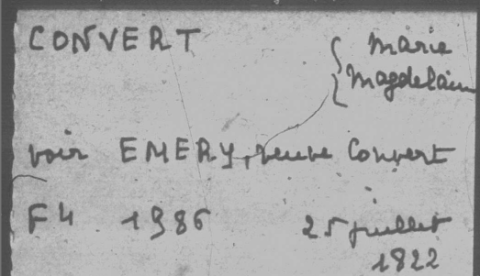 CONVERT { Marie
Magdelain
voir EMERY, veuve Convert
F4 1986 25 juillet
1822